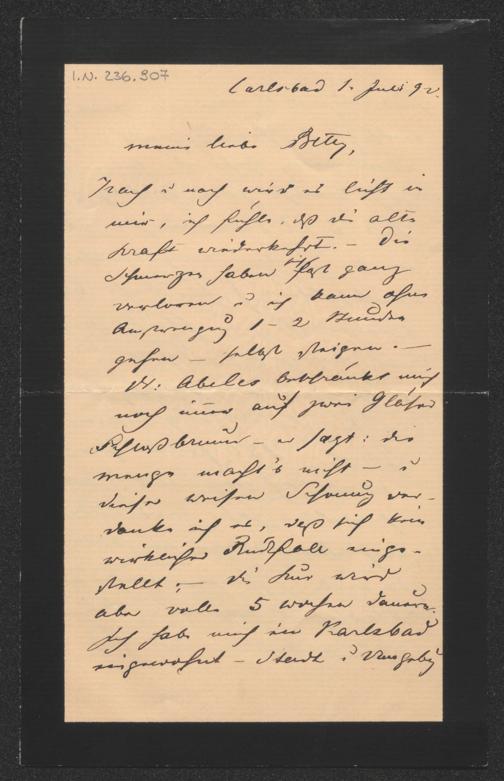 I.N. 236.907
Carlsbad 1. Juli 92.
meine liebe Betty,
Nach u nach wird es licht in
mir, ich fühle, daß die alte
Kraft wiederkehrt. – Die
Schmerzen haben sich fast ganz
verloren u ich kann ohne
Anstrengung 1 – 2 Stunden
gehen – selbst steigen. –
Dr: Abeles beschränkt mich
noch immer auf zwei Gläser
Schloßbrunn – er sagt: die
menge macht's nicht – u
dieser weisen Schonung ver-
danke ich es, daß sich kein
wirklicher Rückfall einge-
stellt; – die Kur wird
aber volle 5 wochen dauern.
Ich habe mich in Karlsbad
eingewohnt – Stadt u Umgebung